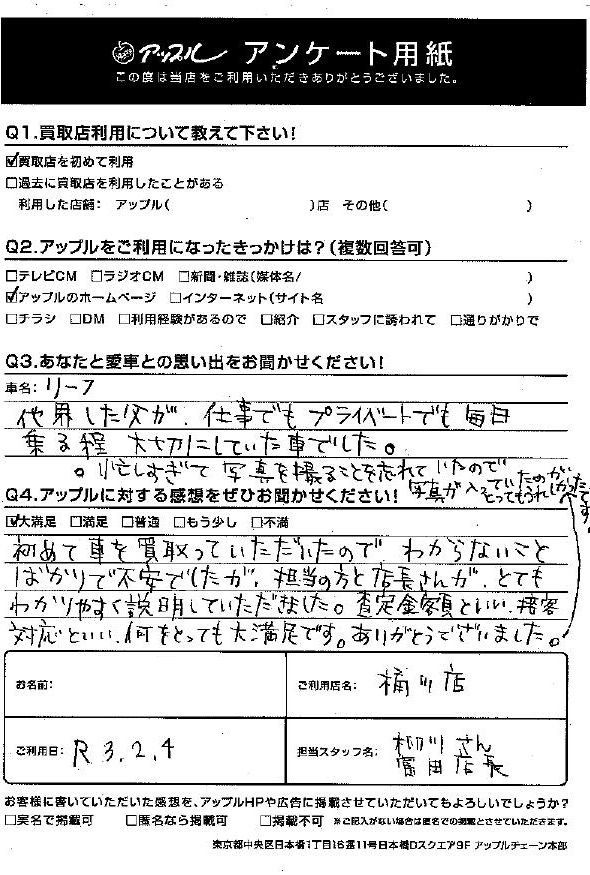 アップル アンケート用紙
この度は当店をご利用いただきありがとうございました。
Q1.買取店利用について教えて下さい!
☑買取店を初めて利用
□過去に買取店を利用したことがある
利用した店舗: アップル( )店 その他( )
Q2.アップルをご利用になったきっかけは?(複数回答可)
□テレビCM □ラジオCM □新聞・雑誌(媒体名/ )
☑アップルのホームページ □インターネット(サイト名 )
□チラシ □DM □利用経験があるので □紹介 □スタッフに誘われて □通りがかりで
Q3.あなたと愛車との思い出をお聞かせください!
車名:リーフ
他界した父が、仕事でもプライベートでも毎日
乗る程 大切にしていた車でした。
。忙しすぎて写真を撮ることを忘れていたので
写真が入っていたのが
とってもうれしかったです。
Q4.アップルに対する感想をぜひお聞かせください!
☑大満足 □満足 □普通 □もう少し □不満
初めて車を買取っていただいたので、わからないこと
ばかりで不安でしたが、担当の方と店長さんが、とても
わかりやすく説明していただきました。査定金額といい、接客
対応といい、何をとっても大満足です。ありがとうございました。
お名前:
ご利用店名: 桶川店
ご利用日: R3.2.4
担当スタッフ名: 柳川さん
冨田店長
お客様に書いていただいた感想を、アップルHPや広告に掲載させていただいてもよろしいでしょうか?
□実名で掲載可 □匿名なら掲載可 □掲載不可 ※ご記入がない場合は匿名での掲載とさせていただきます。
東京都中央区日本橋1丁目16番11号日本橋Dスクエア9F アップルチェーン本部